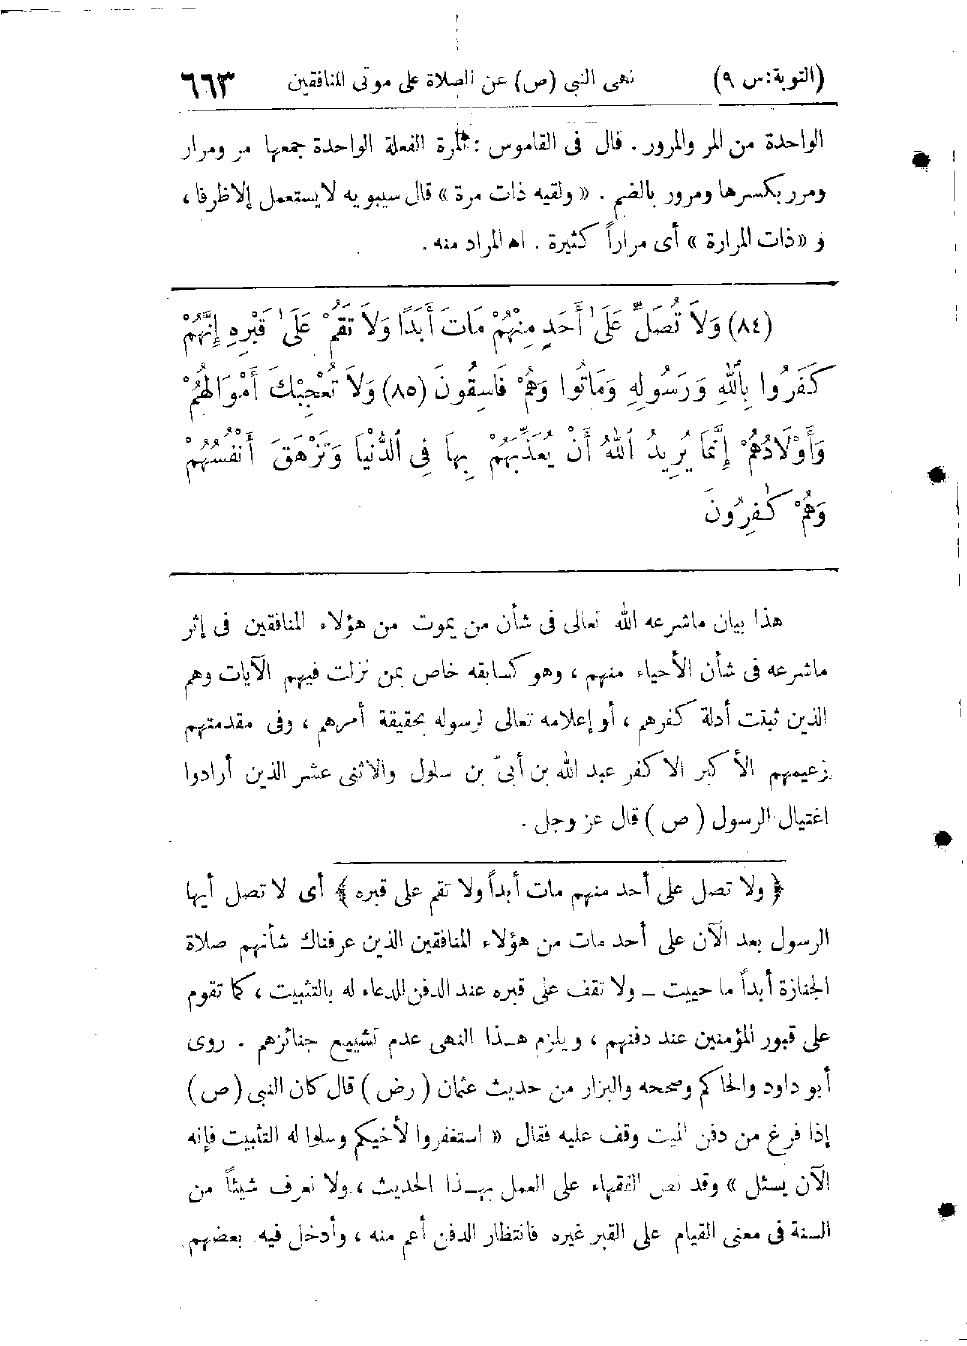 (التوبة: س ٩) نهى النبي (ص) عن الصلاة على موتى المنافقين ٦٦٣
الواحدة من المر والمرور . قال فى القاموس : المرة الفعلة الواحدة جمعها مر ومرار
ومرر بكسرها ومرور بالضم . « ولقيه ذات مرة » قال سيبويه لا يستعمل إلا ظرفا ،
و « ذات المرارة » أى مراراً كثيرة . اه المراد منه .
(٨٤) وَلَا تُصَلِّ عَلَىٰ أَحَدٍ مِنْهُمْ مَاتَ أَبَدًا وَلَا تَقُمْ عَلَىٰ قَبْرِهِ إِنَّهُمْ
كَفَرُوا بِاللَّهِ وَرَسُولِهِ وَمَاتُوا وَهُمْ فَاسِقُونَ (٨٥) وَلَا تُعْجِبْكَ أَمْوَالُهُمْ
وَأَوْلَادُهُمْ إِنَّمَا يُرِيدُ ٱللَّهُ أَنْ يُعَذِّبَهُمْ بِهَا فِى ٱلدُّنْيَا وَتَزْهَقَ أَنْفُسُهُمْ
وَهُمْ كَـٰفِرُونَ
هذا بيان ماشرعه الله تعالى فى شأن من يموت من هؤلاء المنافقين فى إثر
ماشرعه فى شأن الأحياء منهم ، وهو كسابقه خاص بمن نزلت فيهم الآيات وهم
الذين ثبتت أدلة كفرهم ، أو إعلامه تعالى لرسوله بحقيقة أمرهم ، وفى مقدمتهم
زعيمهم الأكبر الاكفر عبد الله بن أبىّ بن سلول والاثنى عشر الذين أرادوا
اغتيال الرسول ( ص ) قال عز وجل .
﴿ ولا تصل على أحد منهم مات أبداً ولا تقم على قبره ﴾ أى لا تصل أيها
الرسول بعد الآن على أحد مات من هؤلاء المنافقين الذين عرفناك شأنهم صلاة
الجنازة أبداً ما حييت ــ ولا تقف على قبره عند الدفن للدعاء له بالتثبيت ، كما تقوم
على قبور المؤمنين عند دفنهم ، ويلزم هـذا النهى عدم تشييع جنائزهم . روى
أبو داود والحاكم وصححه والبزار من حديث عثمان ( رض ) قال كان النبى ( ص )
إذا فرغ من دفن الميت وقف عليه فقال « استغفروا لأخيكم وسلوا له التثبيت فإنه
الآن يسئل » وقد نص الفقهاء على العمل بهـذا الحديث ، ولا نعرف شيئاً من
السنة فى معنى القيام على القبر غيره فانتظار الدفن أعم منه ، وأدخل فيه بعضهم